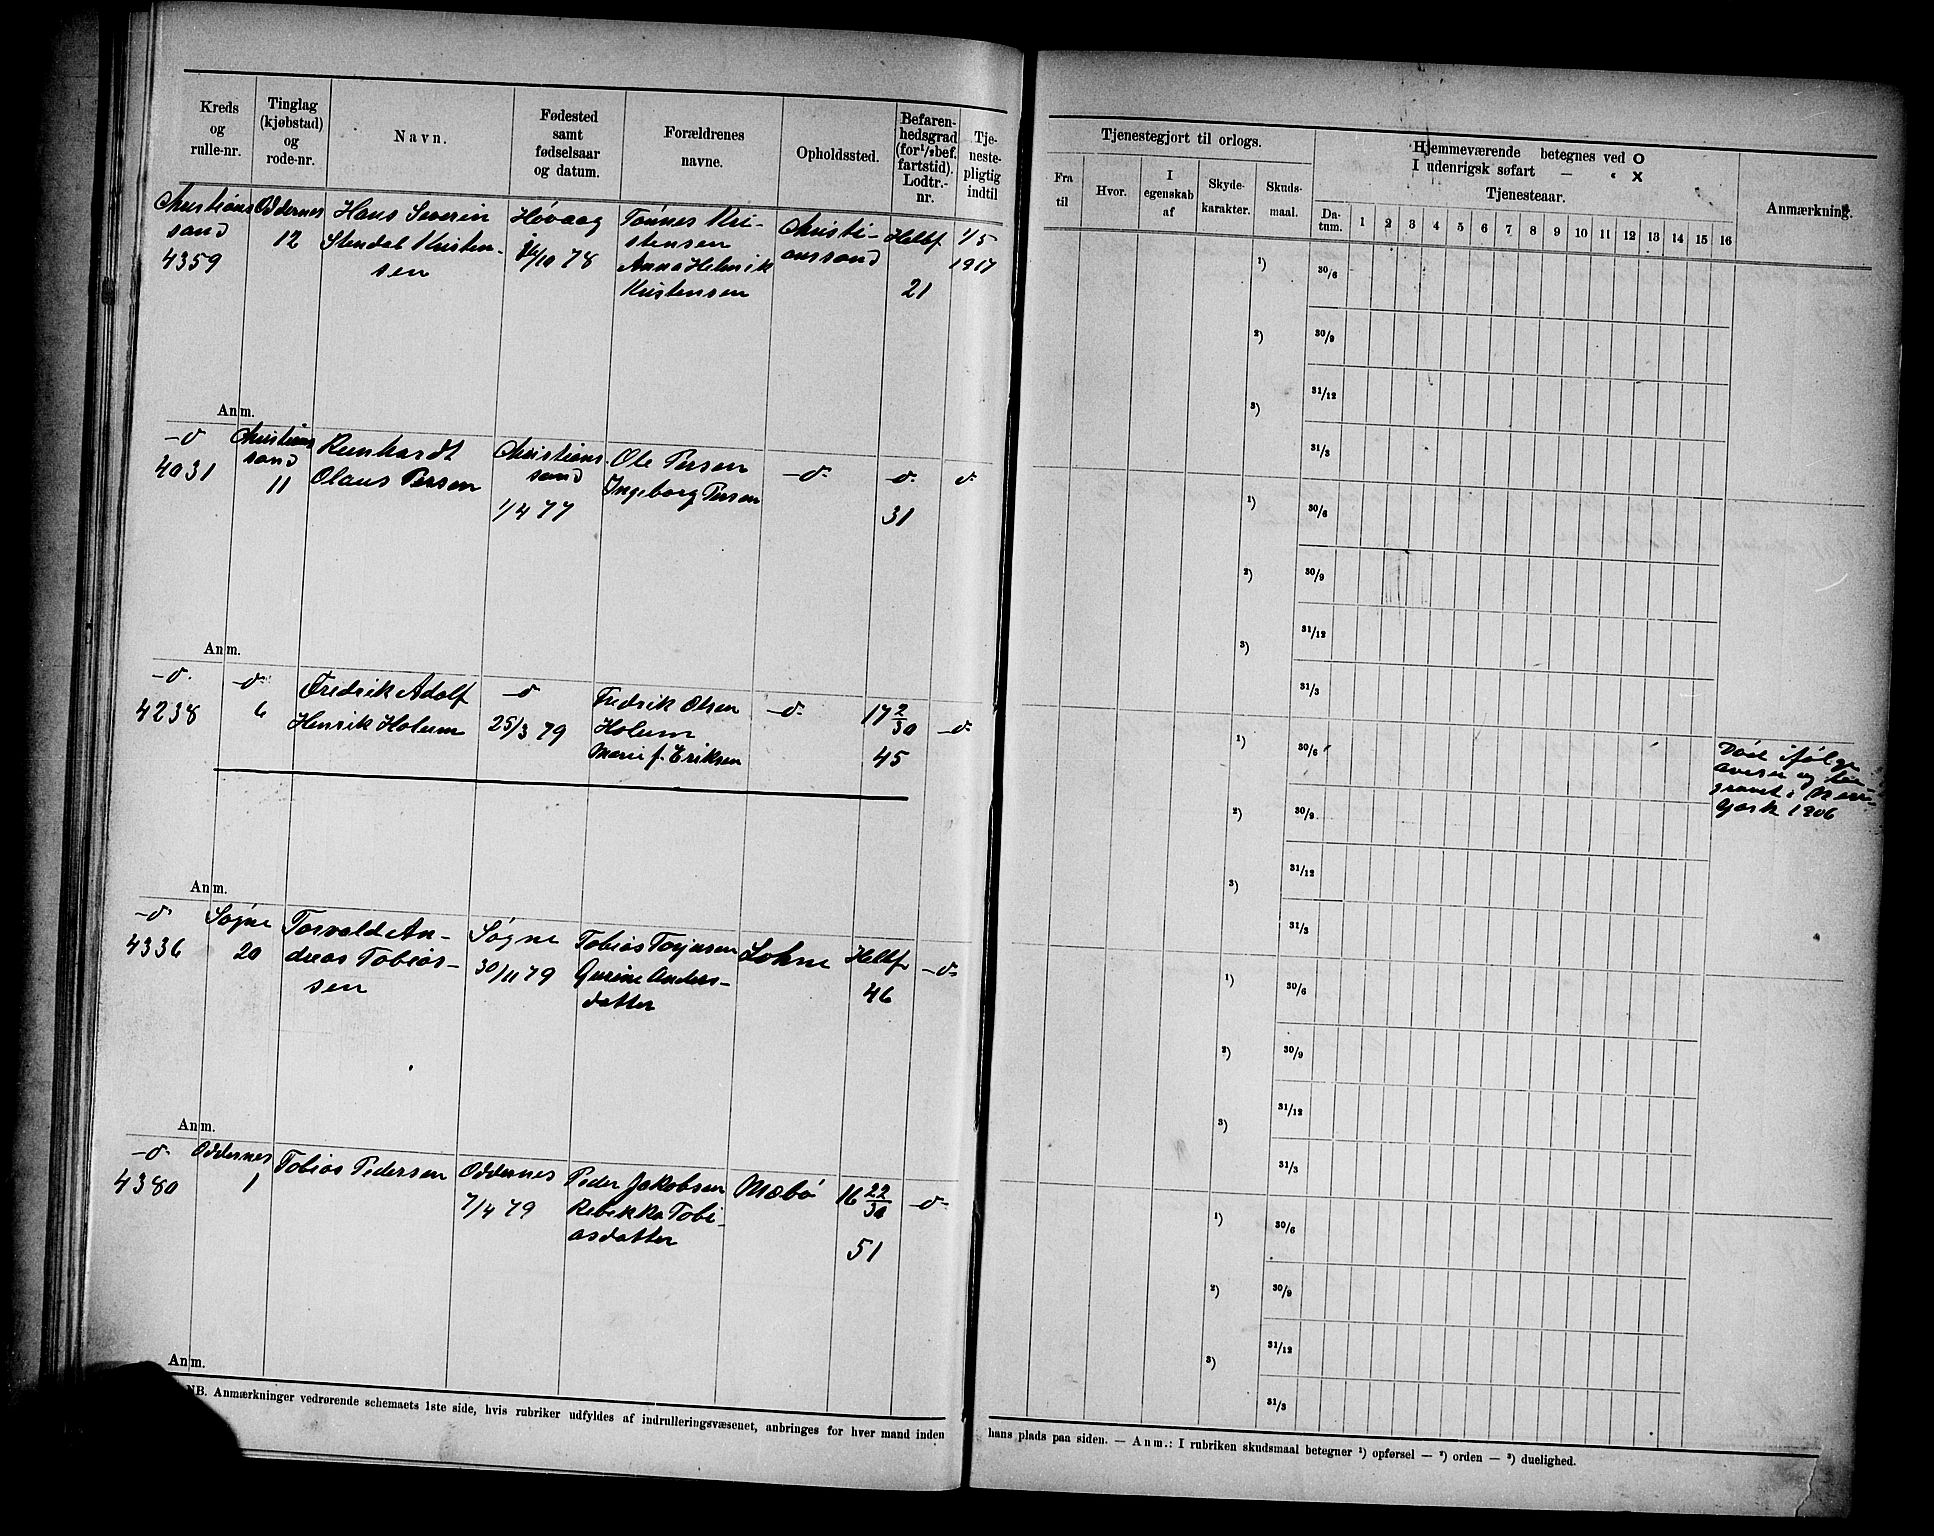 Kreds og rulle-nr.
Tinglag (kjøbstad) og rode-nr.
Navn.
Fødested samt fødselsaar og datum.
Forældrenes navne.
Opholdssted.
Befaren-hedsgrad (for 1/2 bef. fartstid). Lodtr.-nr.
Tje-neste-pligtig indtil
Christians
sand
4359
Oddernes
12
Hans Severin
Stendal Kristen-
sen
Høvaag
/10 78
Tønnes Kri-
stensen
Anna Helmik
Kristensen
Christi-
anssand
Helbf
21
1/5
1917
Anm.
-d-
4031
Christians
sand
11
Reinhardt
Olaus Persen
Christians
sand
1/4 77
Ole Persen
Ingeborg Persen
-d-
-d-
31
d-
Anm.
-d-
4238
-d-
6
Fredrik Adolf
Henrik Holum
-d-
25/3 79
Fredrik Olsen
Holum
Marie f. Eriksen
-d-
17 2/30
45
-d-
Anm.
-d-
4336
Søgne
20
Torvald An-
dreas Tobias-
sen
Søgne
30/11 79
Tobias Torjusen
Gurine Anders-
datter
Lohne
Helbf
46
-d-
Anm.
-d-
4380
Oddernes
1
Tobias Pedersen
Oddernes
7/4 79
Peder Jakobsen
Rebekka Tobi-
asdatter
Mæbø
16 22/30
51
-d-
Anm.
NB. Anmærkninger vedrørende schemaets 1ste side, hvis rubriker udfyldes af indrulleringsvæsenet, anbringes for hver mand inden
Tjenestegjort til orlogs.
Fra til
Hvor.
I egenskab af
Skyde-karakter.
Skuds-maal.
Hjemmeværende betegnes ved O
I udenrigsk søfart — " X
Tjenesteaar.
Da-tum. 1 2 3 4 5 6 7 8 9 10 11 12 13 14 15 16
Anmærkning.
1) 30/6
2) 30/9
31/12
3)
31/3
1) 30/6
2) 30/9
31/12
3)
31/3
1) 30/6
Død ifølge
aviser og
i New
York 1906
2) 30/9
31/12
3)
31/3
1) 30/6
2) 30/9
31/12
3)
31/3
1) 30/6
2) 30/9
31/12
3)
31/3
hans plads paa siden. — Anm.: I rubriken skudsmaal betegner 1) opførsel — 2) orden — 3) duelighed.